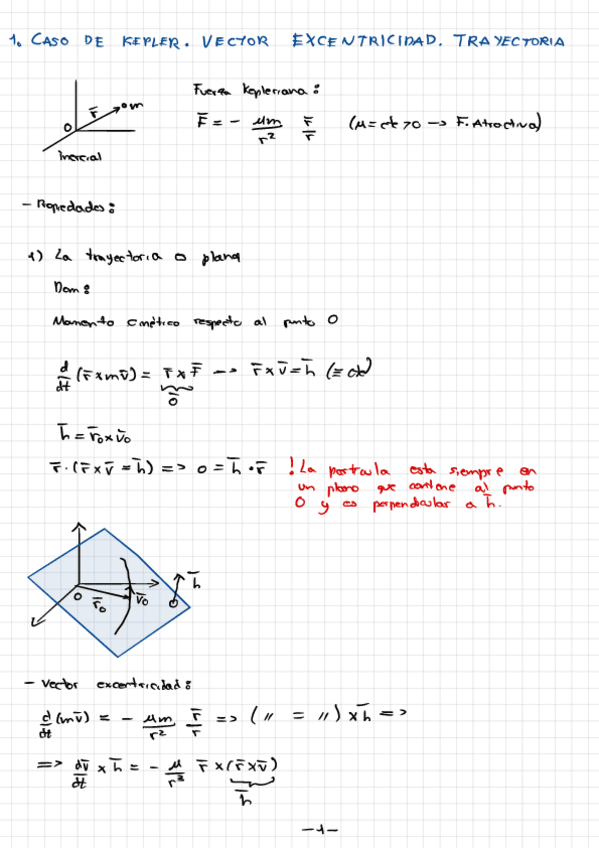 1. CASO DE KEPLER. VECTOR EXCENTRICIDAD. TRAYECTORIA
Fuerza Kepleriana:
F̄ = - μm/r² r̄/r (μ = ct > 0 → F. Atractiva)
r̄ m
O
Inercial
- Propiedades:
1) La trayectoria es plana
Dem:
Momento cinético respecto al punto O
d/dt (r̄ x m v̄) = r̄ x F̄ → r̄ x v̄ = h̄ (≡ ct)
0̄
h̄ = r̄₀ x v̄₀
r̄ · (r̄ x v̄ = h̄) => 0 = h̄ · r̄ ! La partícula esta siempre en
un plano que contiene al punto
O y es perpendicular a h̄.
h̄
O r̄₀ v̄₀
- Vector excentricidad:
d/dt (m v̄) = - μm/r² r̄/r => ( " = " ) x h̄ =>
=> dv̄/dt x h̄ = - μ/r³ r̄ x (r̄ x v̄)
h̄
-1-